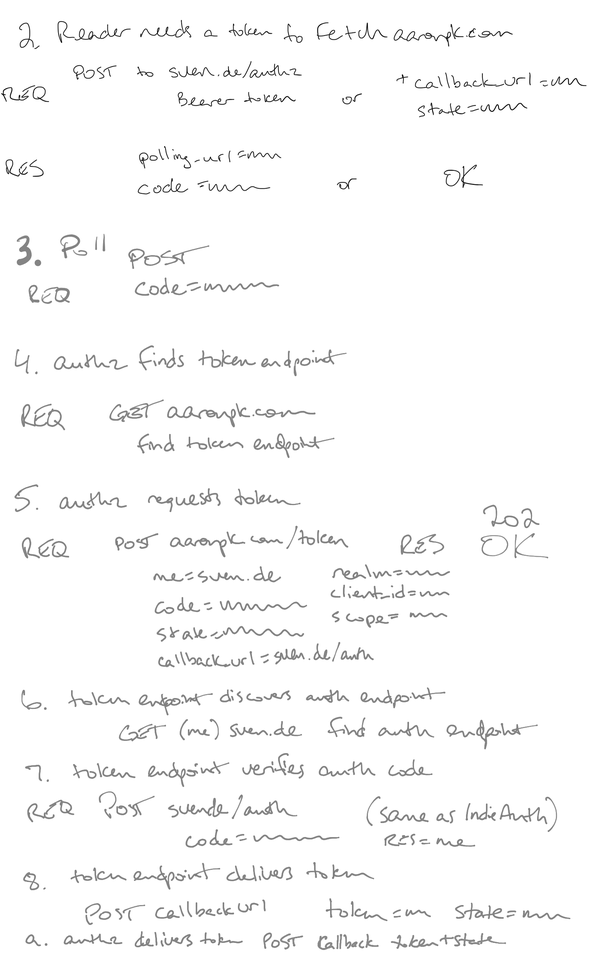 2. Reader needs a token to fetch aaronpk.com
REQ POST to sven.de/authz + callback_url=
Bearer token or state=
RES polling-url=
code = or OK
3. Poll POST
REQ code=
4. authz finds token endpoint
REQ GET aaronpk.com
find token endpoint
5. authz requests token
202
REQ POST aaronpk.com/token RES OK
me=sven.de realm=
client_id=
code= scope=
state=
callback_url=sven.de/auth
6. token endpoint discovers auth endpoint
GET (me) sven.de find auth endpoint
7. token endpoint verifies auth code
REQ POST svende/auth (same as IndieAuth)
code= RES=me
8. token endpoint delivers token
POST callback url token= state=
a. authz delivers token POST callback token+state